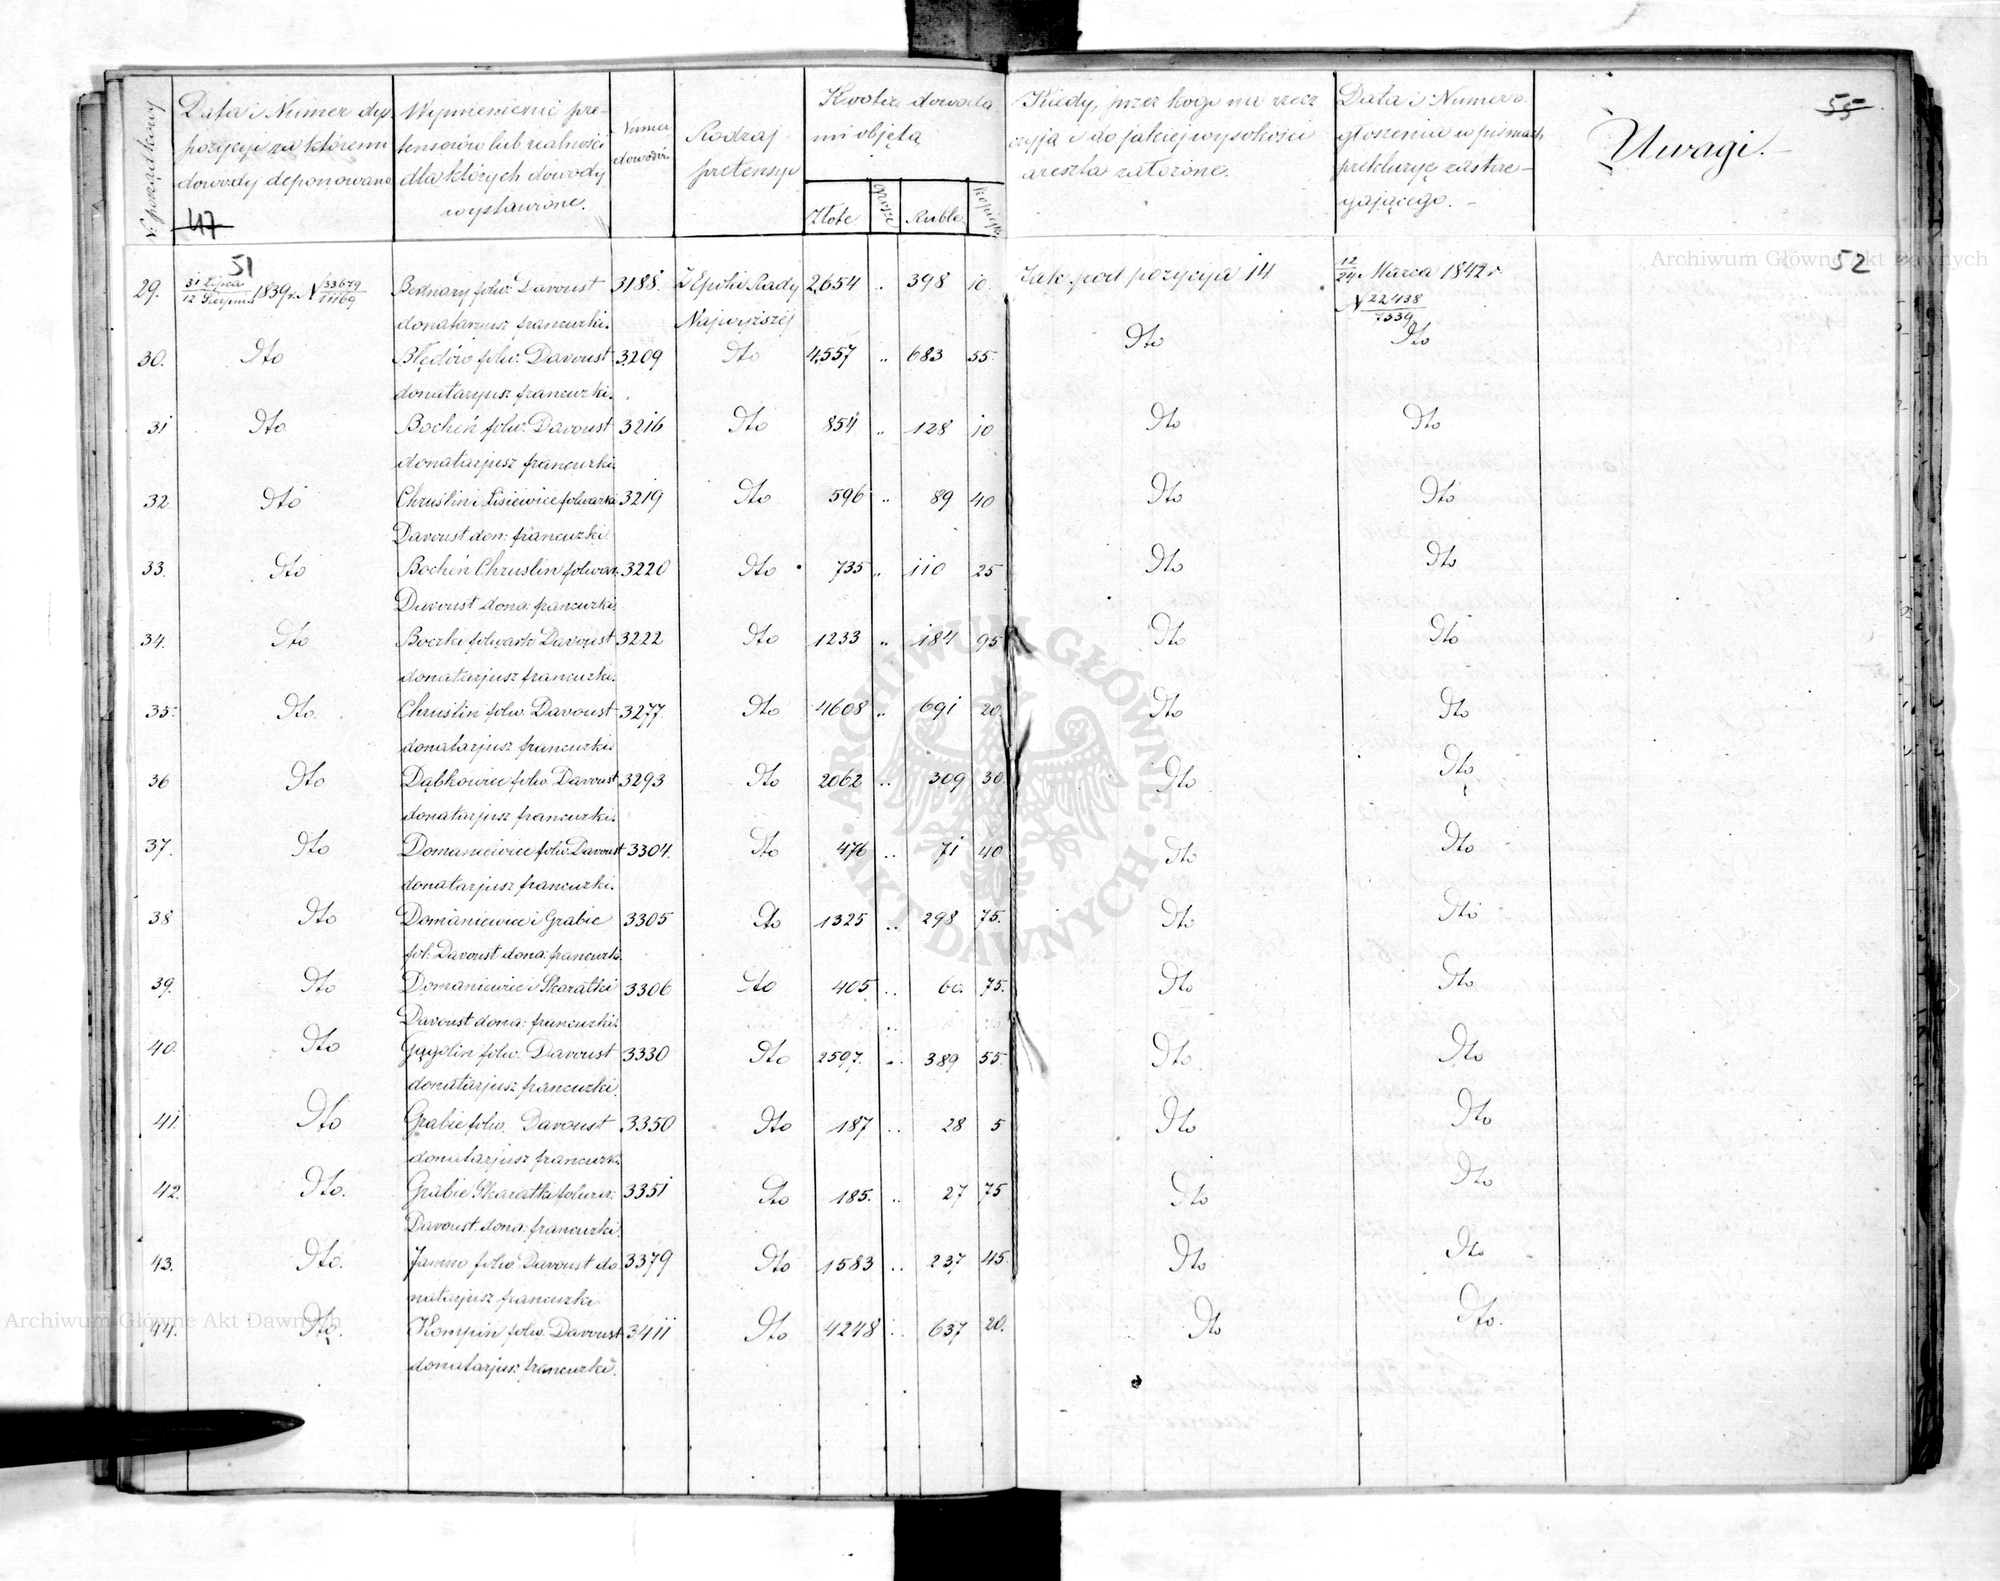 55
N. porządkowy
Data i Numer dys
pozycyi za któremi
dowody deponowano
47
Wymienienie pre-
tensorów lub realności
dla których dowody
wystawione.
Numer
dowodu
Rodzaj
pretensyi
Kwota dowoda
mi objęta
Złote
grosze
Ruble
kopiejki
Kiedy, przez kogo na rzecz
czyją i do jakiej wysokości
areszta założone.
Data i Numer o
głoszenia w pismach
prekluzyę zastrze-
gającego.
Uwagi.
51
52
29. 31 Lipca / 12 Sierpnia 1839 r. N 33679/11169 Bednary folw: Davoust 3188. Z Epoki Rady 2654 .. 398 10. Jak pod pozycyja 14 12/24 Marca 1842 r.
donatarjusz francuzki. Najwyższej N 22438/7339
30. Dto Błędów folw: Davoust 3209 Dto 4,557 .. 683 55. Dto Dto
donataryusz francuzki.
31 Dto Bocheń folw: Davoust 3216 Dto 854 .. 128 10 Dto Dto
donatarjusz francuzki.
32. Dto Chruślin i Lisiewice folwarka 3219 Dto 596 .. 89 40 Dto Dto
Davoust don: francuzki.
33. Dto Bocheń Chruslin folwar. 3220 Dto 735 .. 110 25 Dto Dto
Davoust dona: francuzki.
34. Dto Boczki folwark Davoust 3222 Dto 1233 .. 184 95 Dto Dto
donatarjusz francuzki.
35. Dto. Chruślin folw. Davoust 3277. Dto 4608 .. 691 20. Dto Dto
donatarjusz francuzki.
36 Dto Dąbkowice folw. Davoust 3293 Dto 2062 .. 309 30. Dto Dto
donatarjusz francuzki.
37. Dto Domaniewice folw. Davoust 3304. Dto 476 .. 71 40 Dto Dto
donatarjusz francuzki.
38 Dto Domaniewice i Grabie 3305 Dto 1325 .. 298 75. Dto Dto
fol: Davoust dona: francuzki.
39. Dto Domaniewice i Skaratki 3306 Dto 405 .. 60. 75. Dto Dto
Davoust dona: francuzki.
40. Dto Gągolin folw. Davoust 3330 Dto 2597. .. 389 55. Dto. Dto
donatarjusz francuzki.
41. Dto Grabie folw. Davoust 3350 Dto 187 .. 28 5 Dto Dto
donatarjusz francuzk.
42. Dto. Grabie Skaratki folwar: 3351 Dto 185. .. 27 75 Dto Dto
Davoust dona: francuzki.
43. Dto. Jamno folw: Davoust do 3379 Dto 1583 .. 237 45. Dto Dto
natarjusz francuzki
44. Dto. Kompin folw. Davoust 3411 Dto 4248 .. 637 20. Dto Dto.
donatarjusz francuzki.
Archiwum Główne Akt Dawnych
Archiwum Główne Akt Dawnych
ARCHIWUM GŁÓWNE · AKT DAWNYCH ·